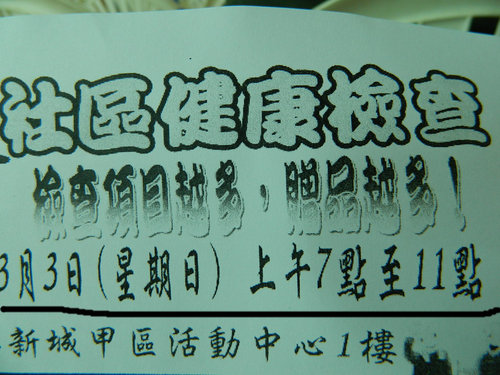 社區健康檢查
檢查項目越多，贈品越多！
3月3日(星期日) 上午7點至11點
新城甲區活動中心1樓